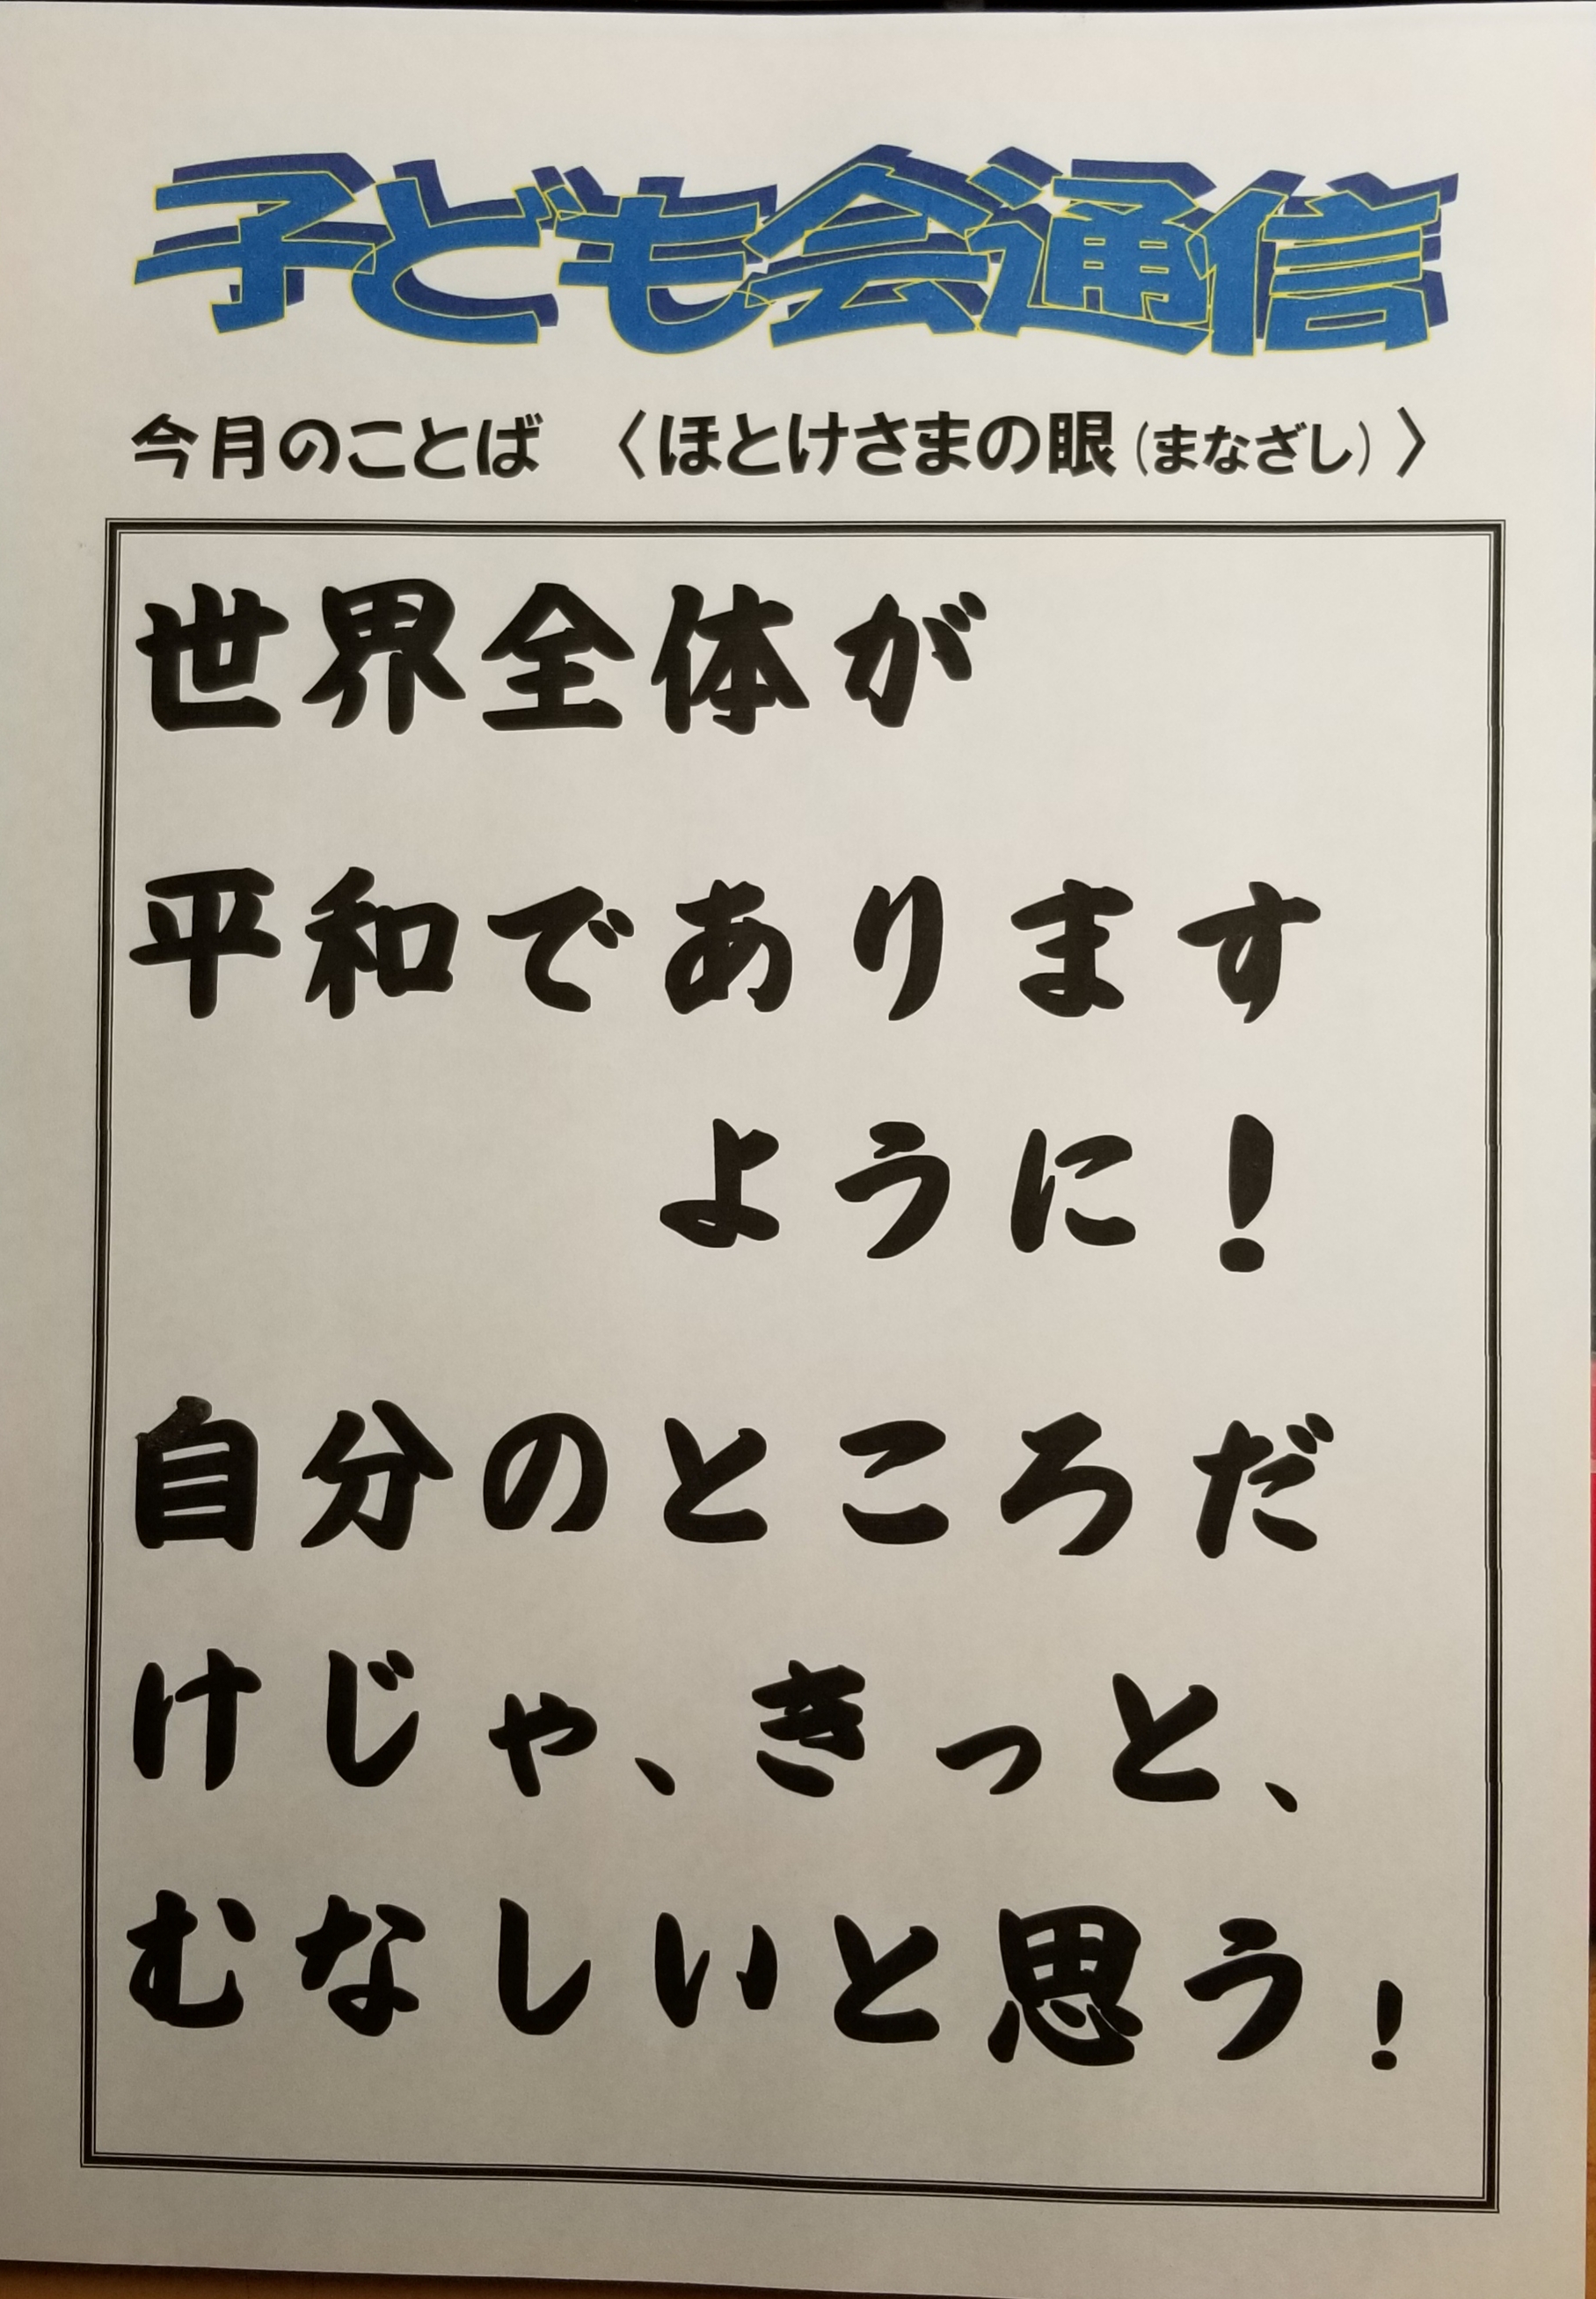 子ども会通信
今月のことば 〈ほとけさまの眼(まなざし)〉
世界全体が
平和であります
ように!
自分のところだ
けじゃ、きっと、
むなしいと思う!